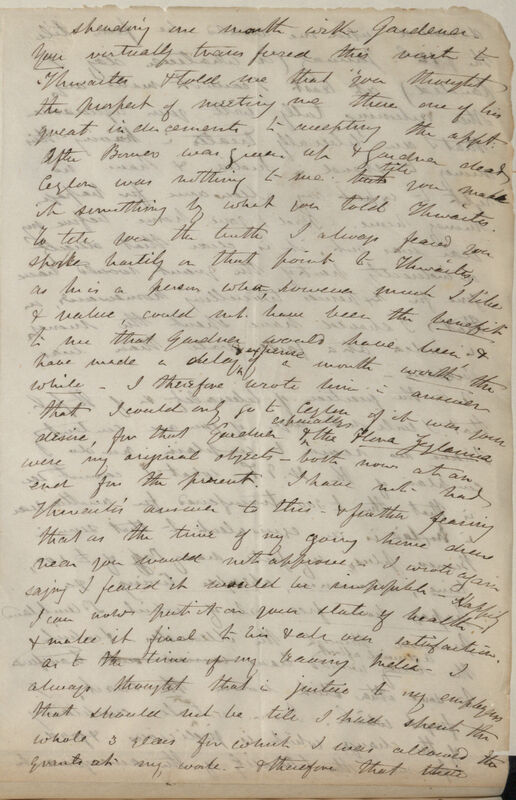 spending one month with Gardener
You virtually transferred this visit to
Thwaites & told me that you thought
the prospect of meeting me there one of his
great inducements to accepting the appt.
After Borneo was given up & Gardner dead,
Ceylon was nothing to me till you made
it something by what you told Thwaites.
To tell you the truth I always feared you
spoke hastily on that point to Thwaites,
as he is a person who, however much I like
& value, could not have been the benefit
to me that Gardner would have been &
have made a delay & expense of a month worth the
while – I therefore wrote him in answer
that I could only go to Ceylon if it was your
desire, for that Gardner & especially the Flora Zeylanica
were my original objects – both now at an
end for the present. I have not had
Thwaites's answer to this – & further fearing
that as the time of my going home drew
near you would not approve, I wrote again
saying I feared it would be impossible. Happily
I can now put it on your state of health
& make it final to his & all our satisfaction.
As to the time of my leaving India – I
always thought that in justice to my employers
that should not be till I had spent the
whole 3 years for which I was allowed the
grants at my work. & therefore that